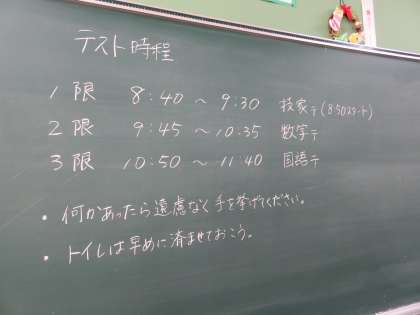 テスト時程
1限 8:40 ~ 9:30 技家テ(8:50スタート)
2限 9:45 ~ 10:35 数学テ
3限 10:50 ~ 11:40 国語テ
・何かあったら遠慮なく手を挙げてください。
・トイレは早めに済ませておこう。